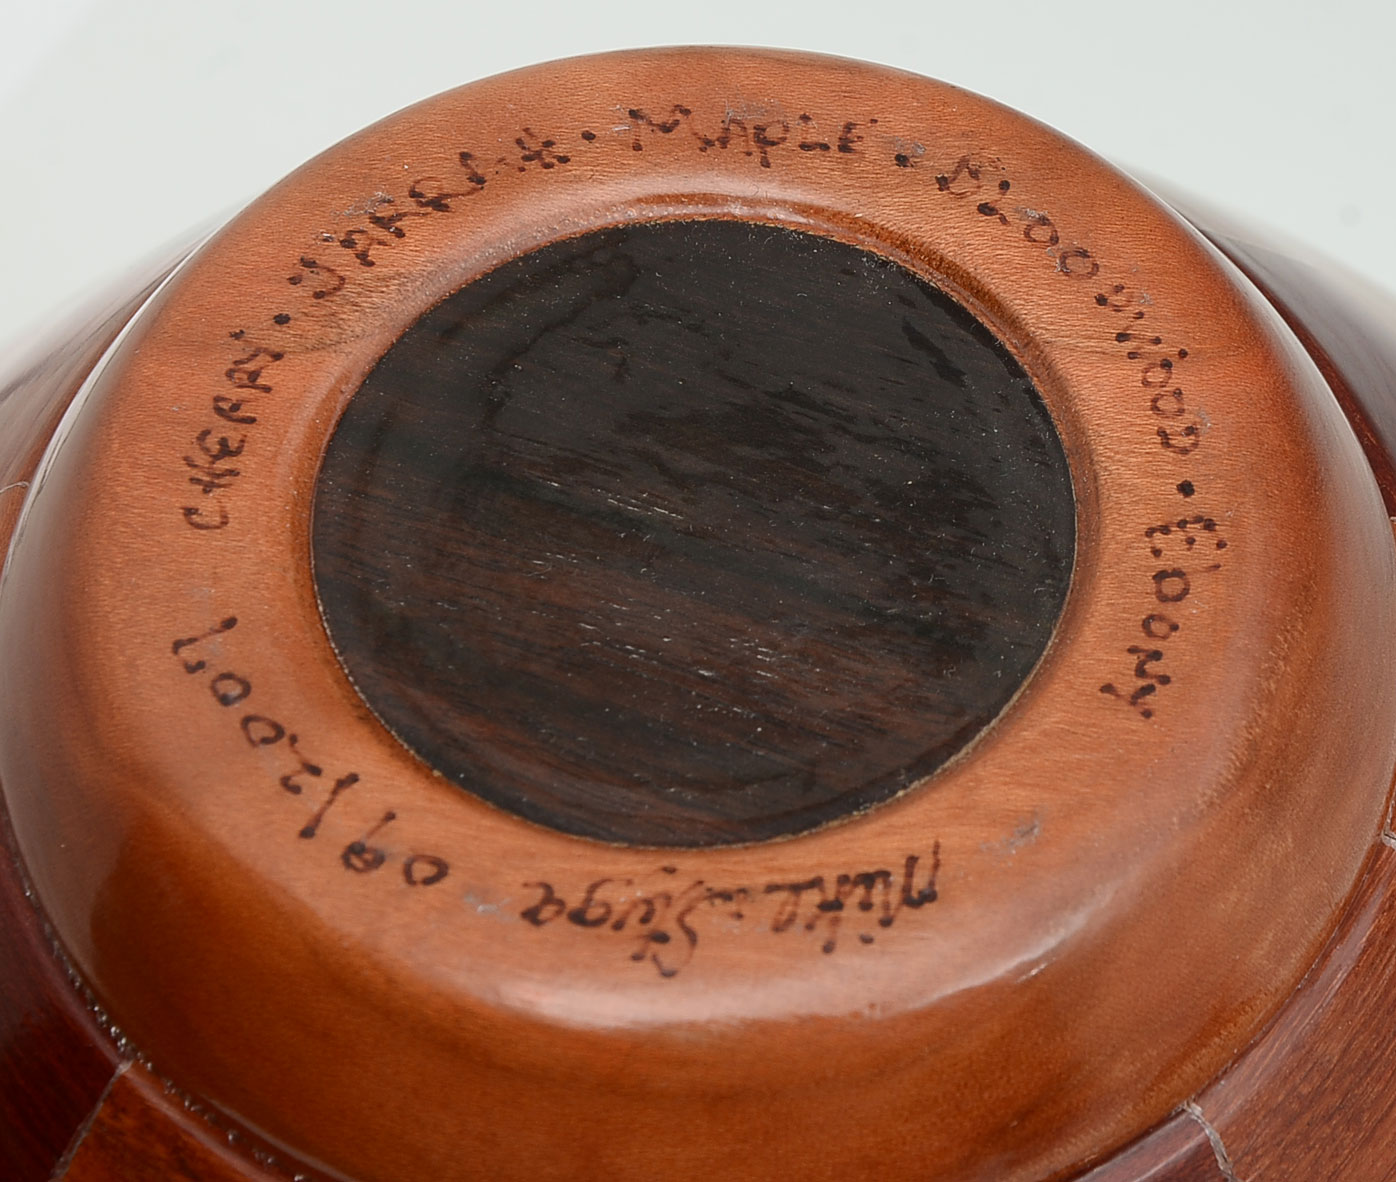 CHERRY • JARRAH • MAPLE • BLOODWOOD • EBONY
Mike Stuga 09/2007